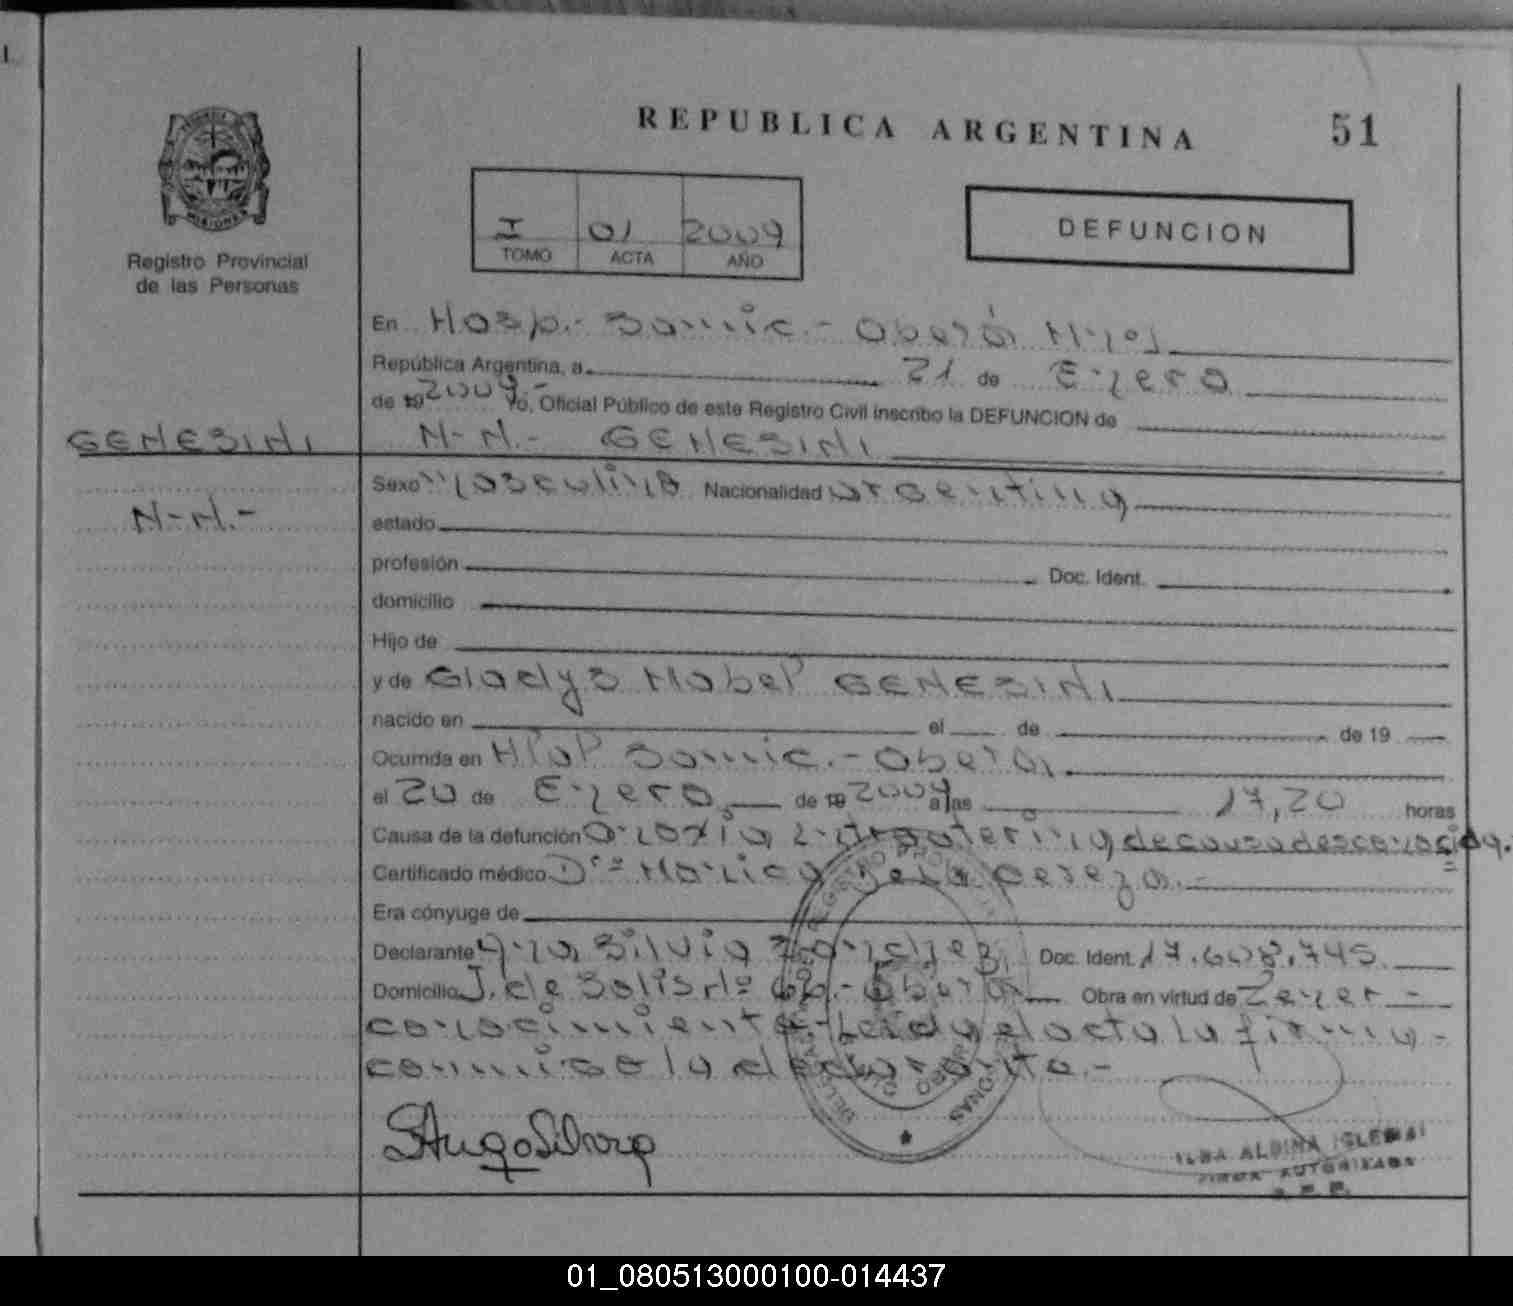 REPUBLICA ARGENTINA 51
I 01 2009
TOMO ACTA AÑO
DEFUNCION
Registro Provincial
de las Personas
En Hosp.- Samic.- Oberá Mnes
República Argentina, a 21 de Enero
de 19 2009.- Yo, Oficial Público de este Registro Civil inscribo la DEFUNCION de
GENESINI N-N.- GENESINI
Sexo Masculino Nacionalidad argentina
N-N.-
estado
profesión Doc. Ident.
domicilio
Hijo de
y de Gladys Mabel GENESINI
nacido en el de de 19
Ocurrida en Htal Samic.- Oberá
el 20 de Enero de 19 2009 a las 17,20 horas
Causa de la defunción anoxia intrauterina de causa desconocida.
Certificado médico Dra Monica
Era cónyuge de
Declarante Ana Silvia Doc. Ident. 17.608.745
Domicilio J. de Solis nº 66.- Oberá Obra en virtud de Tener
conocimiento.- Leida el acta la firma
conmigo la declarante.-
ILDA ALBINA IGLESIAS
FIRMA AUTORIZADA
R. P. P.
01_080513000100-014437